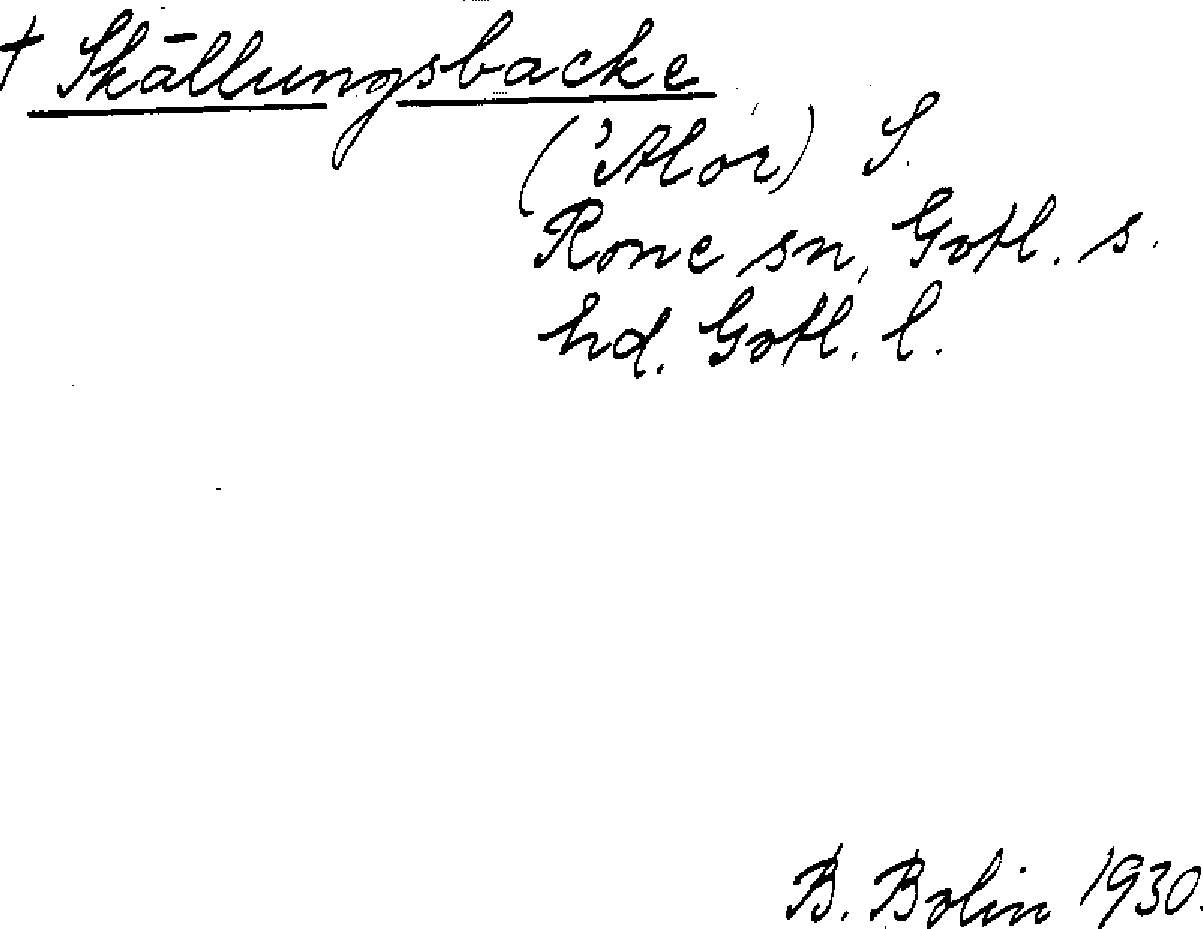 † Skällungsbacke
('Alor) S.
Rone sn, Gotl. s.
hd. Gotl. l.
B. Bolin 1930.